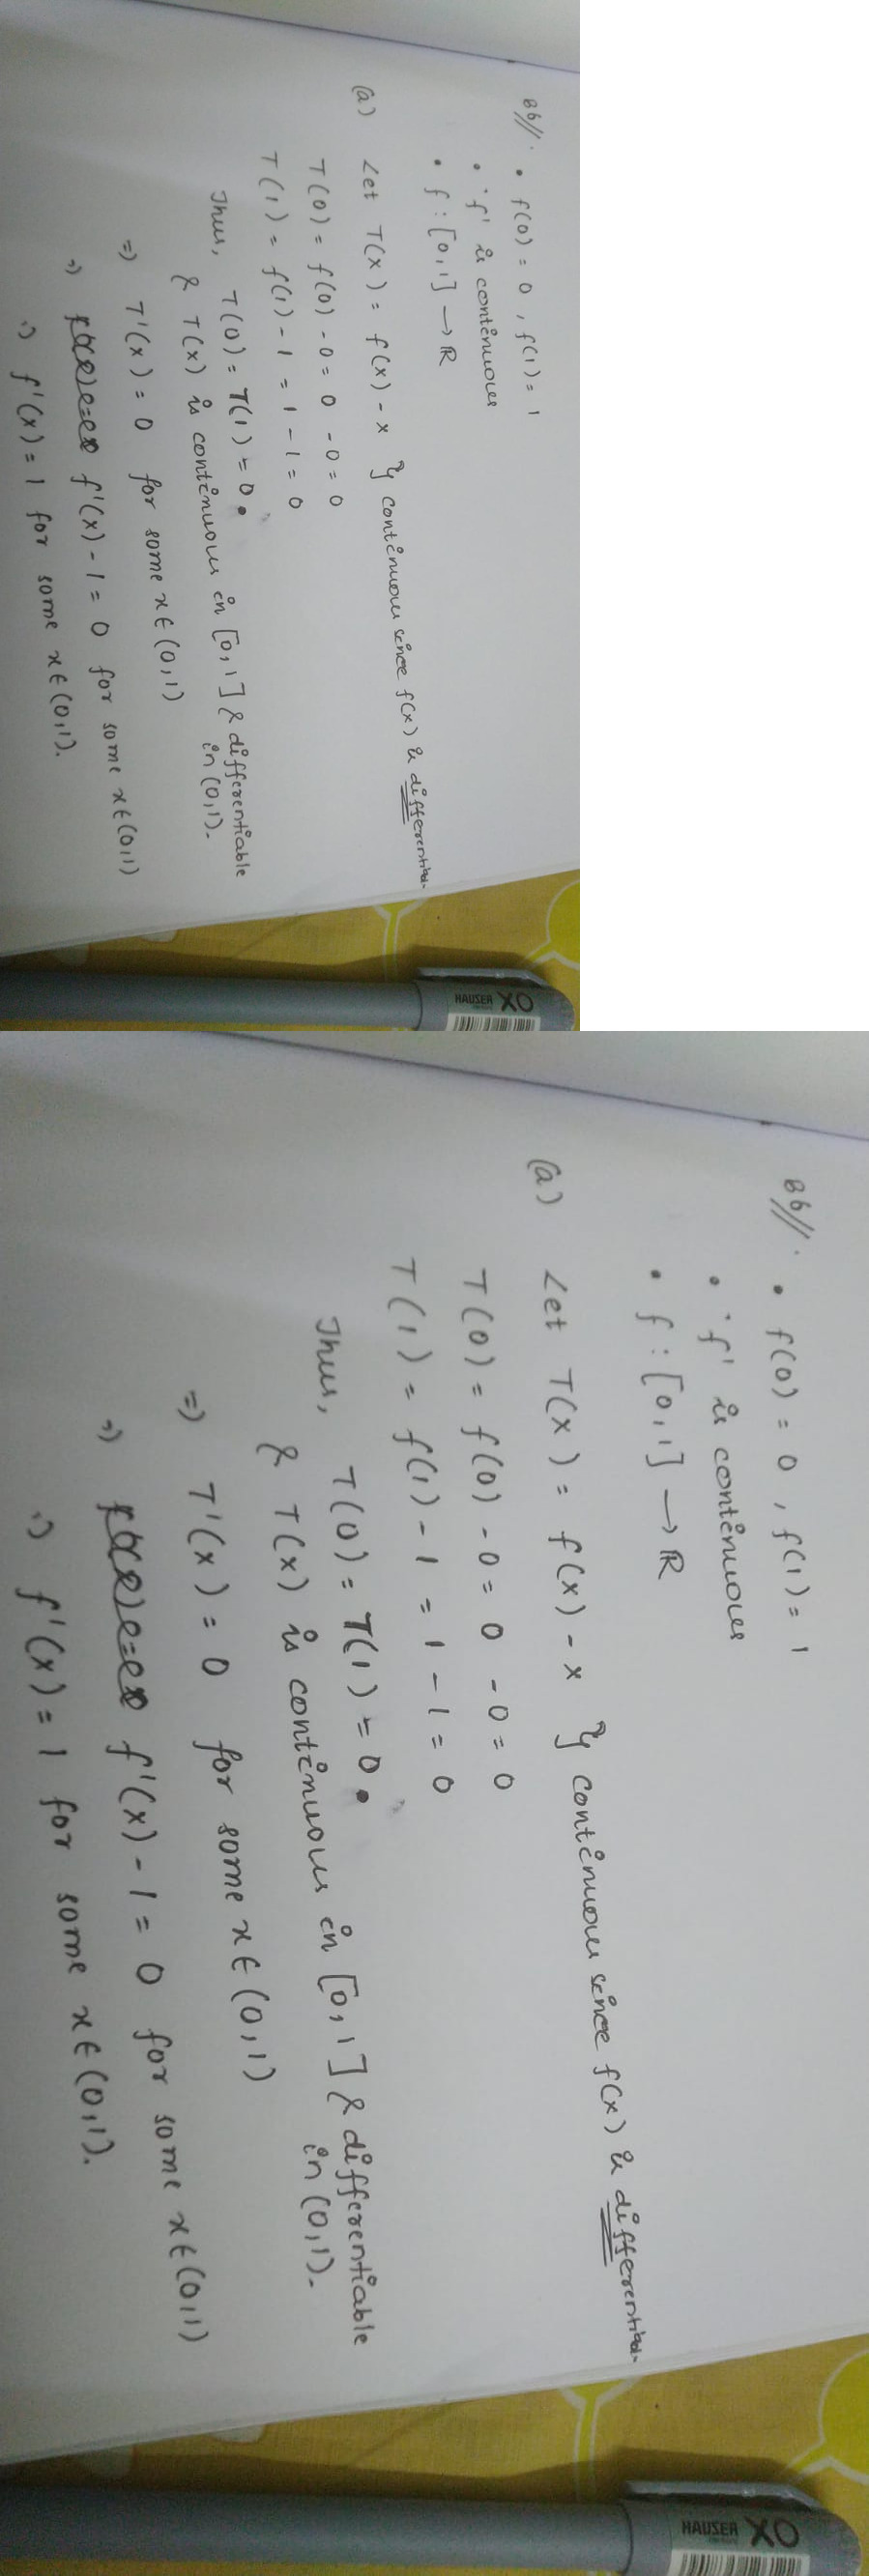 86//. • f(0) = 0 , f(1) = 1
• f' is continuous
• f : [0,1] → R
(a) Let T(x) = f(x) - x } continuous since f(x) is
T(0) = f(0) - 0 = 0 - 0 = 0
T(1) = f(1) - 1 = 1 - 1 = 0
Thus, T(0) = T(1) = 0.
& T(x) is continuous in [0,1] & differentiable
in (0,1).
=> T'(x) = 0 for some x ∈ (0,1)
=> f'(x) - 1 = 0 for some x ∈ (0,1)
=> f'(x) = 1 for some x ∈ (0,1).
HAUSER XO
86//. • f(0) = 0 , f(1) = 1
• f' is continuous
• f : [0,1] → R
(a) Let T(x) = f(x) - x } continuous since f(x) is
T(0) = f(0) - 0 = 0 - 0 = 0
T(1) = f(1) - 1 = 1 - 1 = 0
Thus, T(0) = T(1) = 0.
& T(x) is continuous in [0,1] & differentiable
in (0,1).
=> T'(x) = 0 for some x ∈ (0,1)
=> f'(x) - 1 = 0 for some x ∈ (0,1)
=> f'(x) = 1 for some x ∈ (0,1).
HAUSER XO